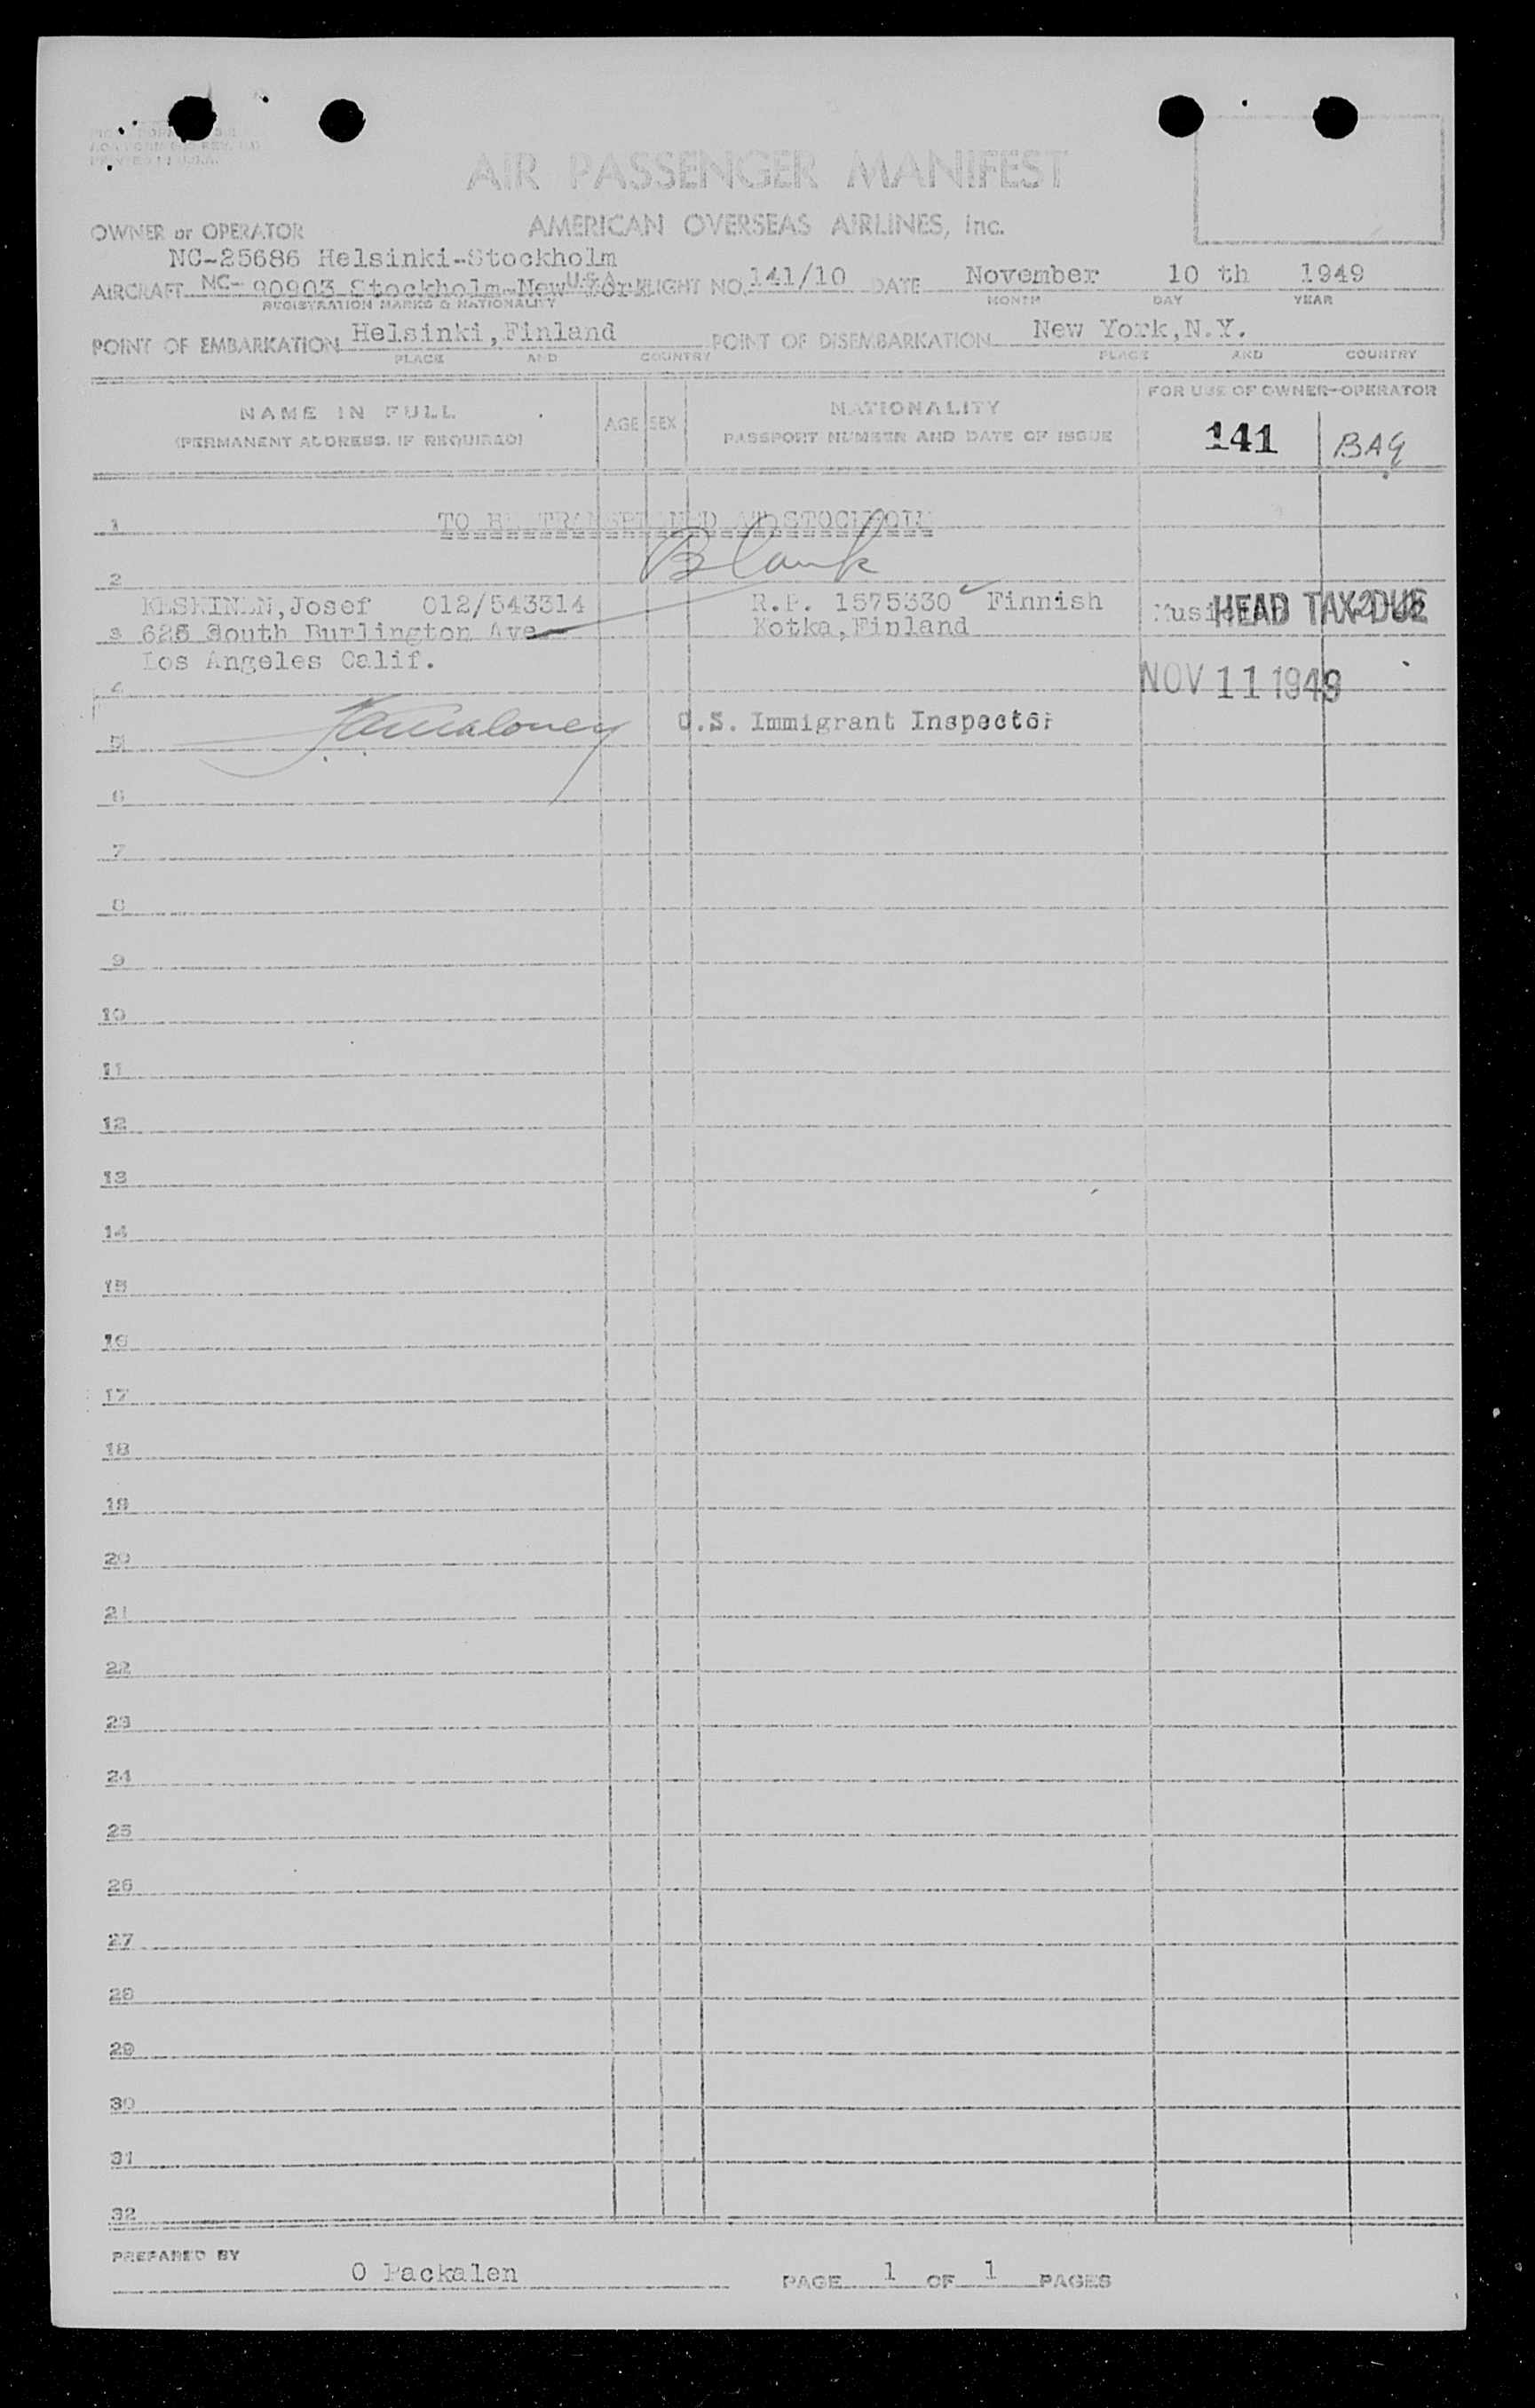 PRINTED IN U.S.A.
AIR PASSENGER MANIFEST
OWNER or OPERATOR AMERICAN OVERSEAS AIRLINES, Inc.
NC-25686 Helsinki-Stockholm
AIRCRAFT NC- 90903 Stockholm-New York U.S.A. FLIGHT NO. 141/10 DATE November 10 th 1949
REGISTRATION MARKS & NATIONALITY MONTH DAY YEAR
POINT OF EMBARKATION Helsinki,Finland POINT OF DISEMBARKATION New York,N.Y.
PLACE AND COUNTRY PLACE AND COUNTRY
NAME IN FULL AGE SEX NATIONALITY FOR USE OF OWNER-OPERATOR
(PERMANENT ADDRESS, IF REQUIRED) PASSPORT NUMBER AND DATE OF ISSUE 141 BAG
1 TO BE TRANSPLANED AT STOCKHOLM
2 Blank
KESKINEN,Josef 012/543314 R.P. 1575330 Finnish HEAD TAX DUE
3 625 South Burlington Ave Kotka,Finland
Los Angeles Calif. NOV 11 1949
4
U.S. Immigrant Inspector
5
6
7
8
9
10
11
12
13
14
15
16
17
18
19
20
21
22
23
24
25
26
27
28
29
30
31
32
PREPARED BY O Packalen PAGE 1 OF 1 PAGES